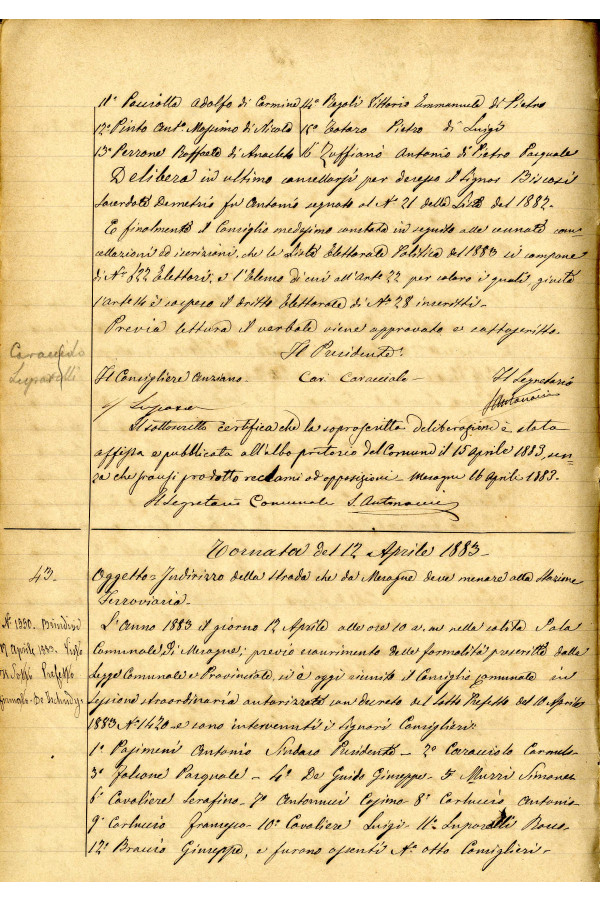 11° Pacciolla Adolfo di Carmine 14° Ragoli Vittorio Emmanuele di Pietro
12° Pinto Ant° Massimo di Nicola 15° Totaro Pietro di Luigi
13° Perrone Raffaele di Anacleto 16 Zuffianò Antonio di Pietro Pasquale
Delibera in ultimo cancellarsi per decesso il Signor Biscosi
Sacerdote Demetrio fu Antonio segnato al N° 21 della Lista del 1882.
E finalmente il Consiglio medesimo constata in seguito alle cennate can-
cellazioni ed iscrizioni, che la Lista Elettorale Politica del 1883 si compone
di N° 822 Elettori; e l'Elenco di cui all'Arte 22 per coloro i quali, giusta
l'Arte 14 è sospeso il dritto Elettorale di N° 28 inscritti-
Previa lettura il verbale viene approvato e sottoscritto.
Il Presidente
Caracciolo
Luparelli
Il Consigliere Anziano. Car. Caracciolo- Il Segretario
f/ Lupara S. Antonucci
Il sottoscritto certifica che la soprascritta deliberazione è stata
affissa e pubblicata all'albo pretorio del Comune il 15 Aprile 1883, sen-
za che siansi prodotto reclami od opposizioni. Mesagne 16 Aprile 1883.
Il Segretario Comunale S. Antonucci
Tornata del 12 Aprile 1883-
43. Oggetto= Indirizzo della strada che da Mesagne deve menare alla Stazione
Ferroviaria-
N° 1350. Brindisi
17 Aprile 1883. Visto
Il Sotto Prefetto
L'Anno 1883 il giorno 12 Aprile alle ore 10 a.m nella solita Sala
Comunale di Mesagne; previo esaurimento delle formalità prescritte dalla
Legge Comunale e Provinciale, si è oggi riunito il Consiglio Comunale in
Sessione straordinaria autorizzata con decreto del Sotto Prefetto del 10 Aprile
1883 N° 1420- e sono intervenuti i Signori Consiglieri:
1° Pasimeni Antonio Sindaco Presidente- 2° Caracciolo Carmelo-
3° Falcone Pasquale- 4° De Guido Giuseppe- 5° Murri Simone
6° Cavaliere Serafino- 7° Antonucci Cosimo- 8° Carluccio Antonio
9° Carluccio Francesco- 10° Cavaliere Luigi- 11° Luparelli Rocco-
12° Braccio Giuseppe, e furono assenti N° otto Consiglieri-